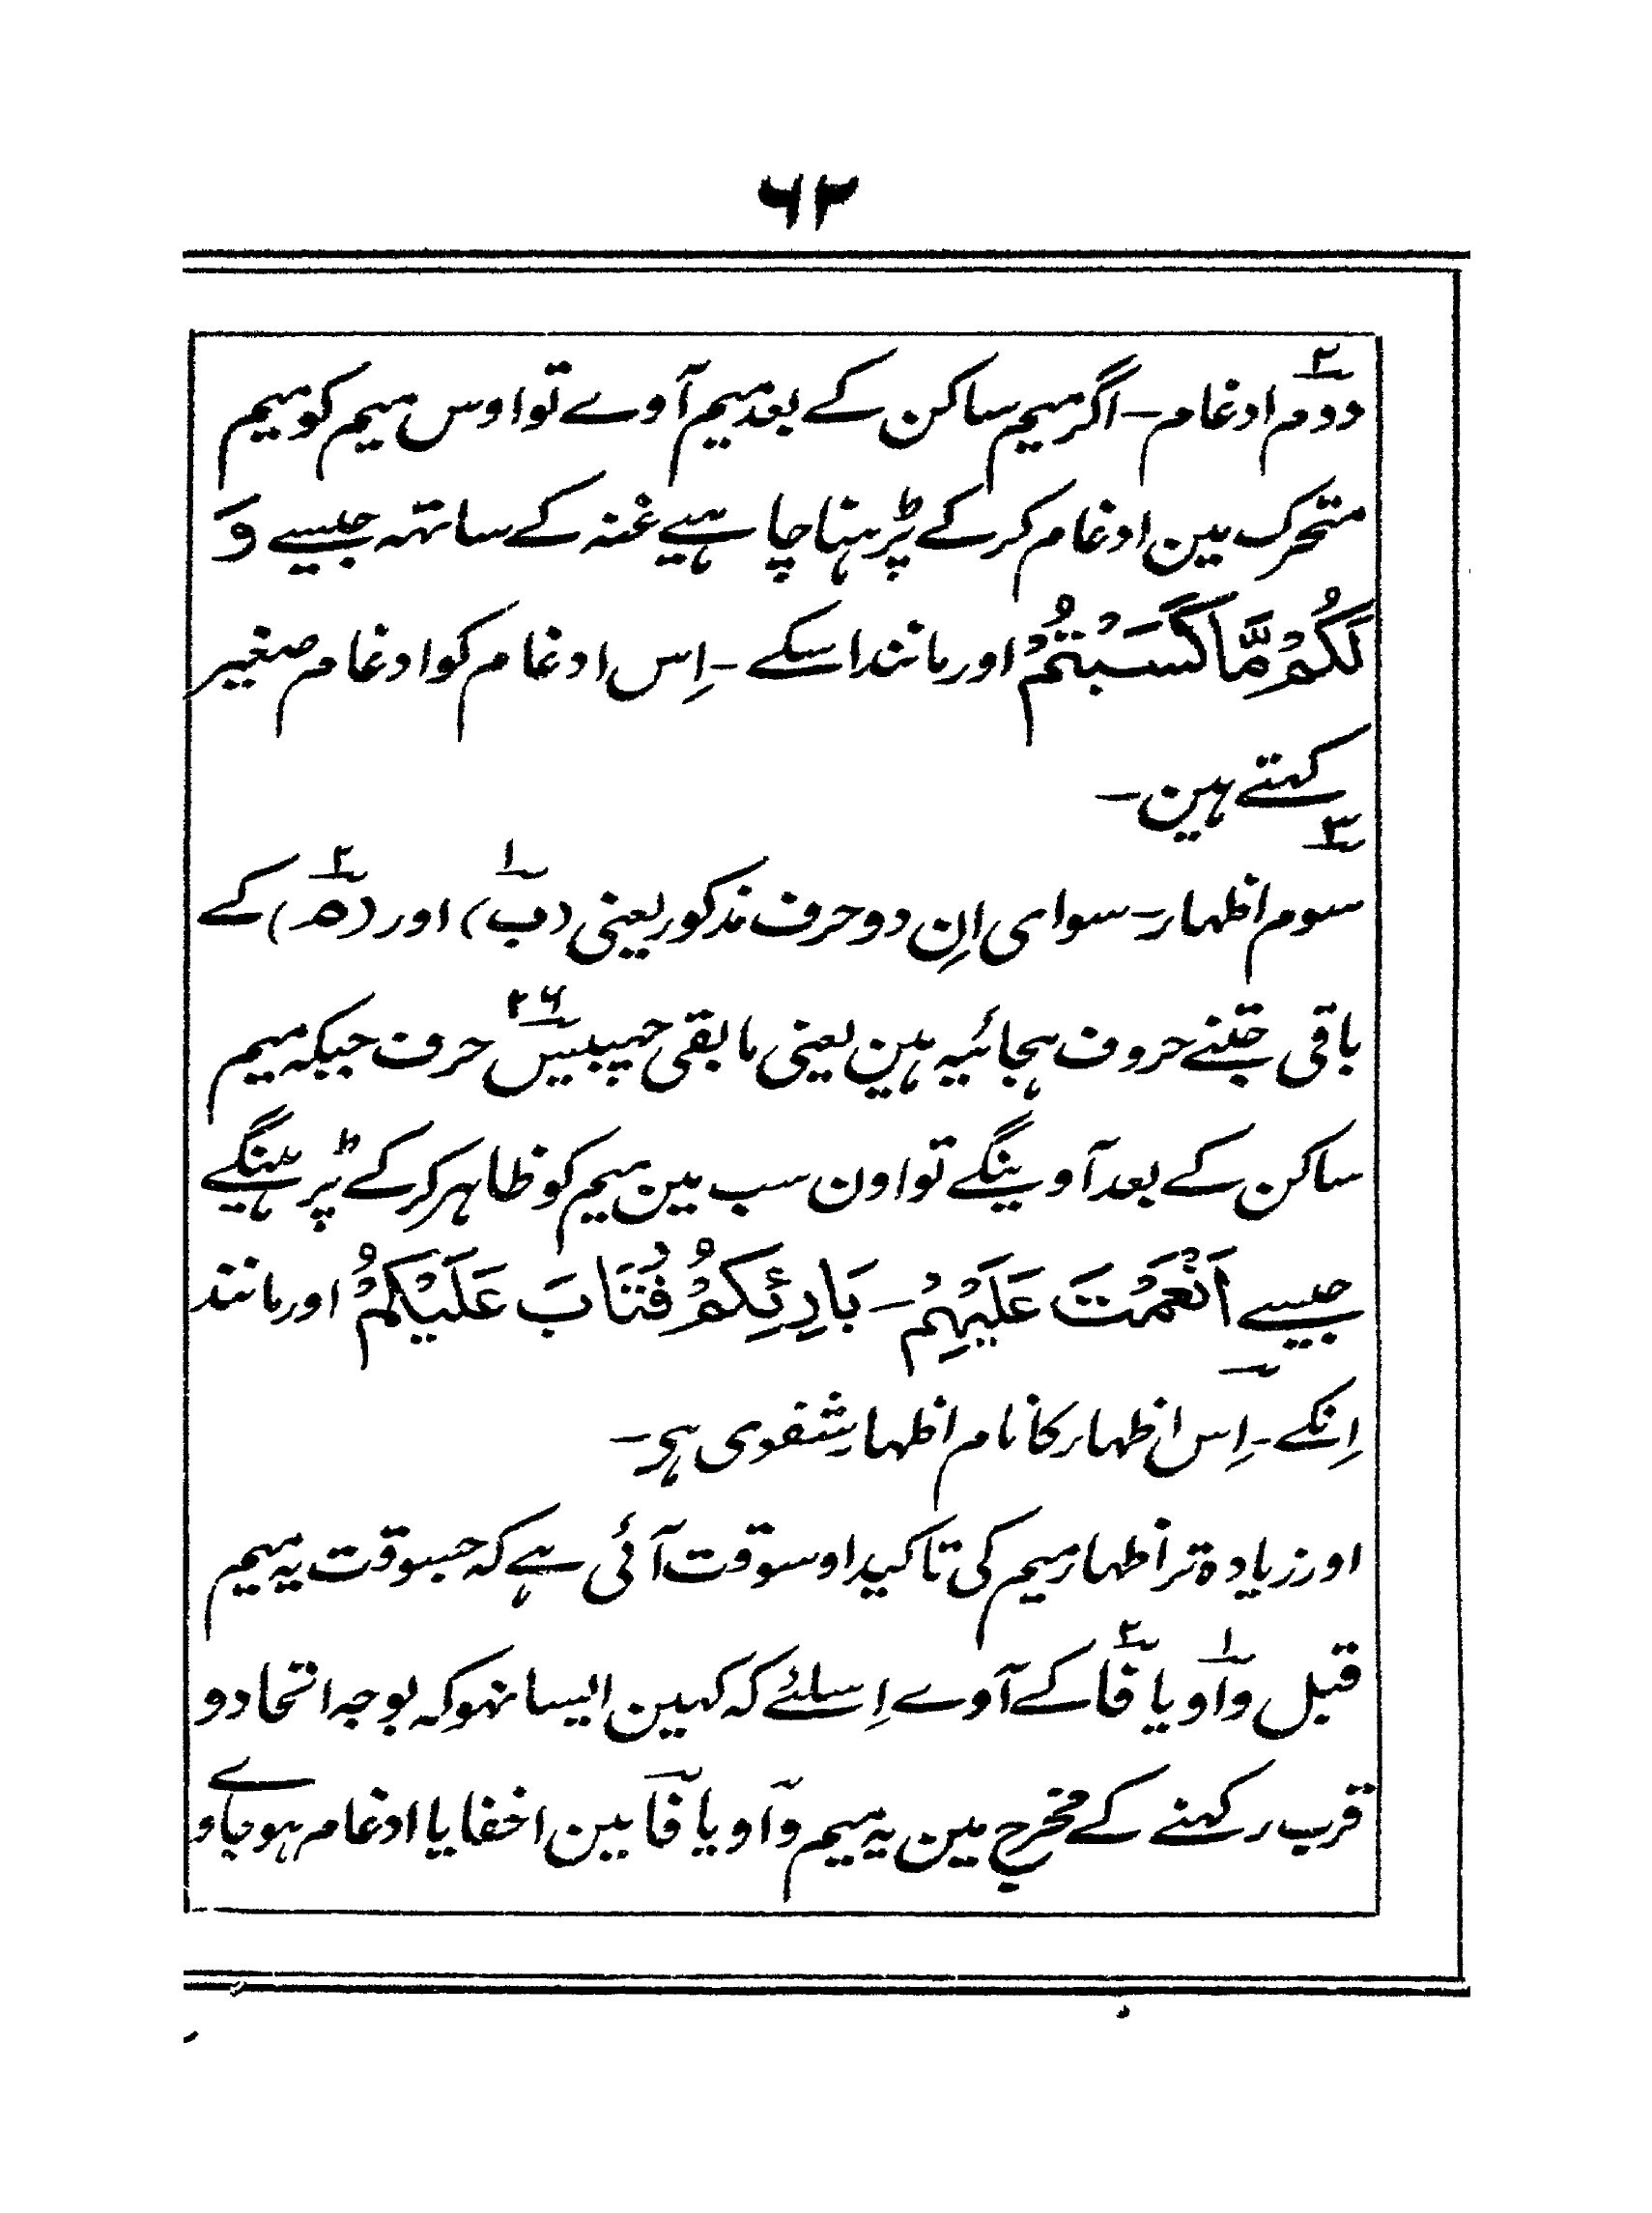 ۶۲
۲
دوم ادغام ۔ اگر میم ساکن کے بعد میم آوے تو اوس میم کو میم
متحرک مین ادغام کر کے پڑہنا چاہیے غنہ کے ساتھہ جیسے وَ
لَكُمْ مَّا كَسَبْتُمْ اور مانند اسکے ۔ اِس ادغام کو ادغام صغیر
کہتے ہین ۔
۳
سوم اظہار ۔ سوای اِن دو حرف مذکور یعنی (ب۱) اور (م۲) کے
باقی جتنے حروف ہجائیہ ہین یعنی مابقی چھبیس ۲۶ حرف جبکہ میم
ساکن کے بعد آوینگے تو اون سب مین میم کو ظاہر کر کے پڑہینگے
جیسے اَنْعَمْتَ عَلَيْهِمْ ۔ بَارِئِكُمْ فَتَابَ عَلَيْكُمْ اور مانند
اِنکے ۔ اِس اظہار کا نام اظہار شفوی ہی ۔
اور زیادہ تر اظہار میم کی تاکید اوسوقت آئی ہے کہ جسوقت یہ میم
قبل واو۱ یا فا۲ کے آوے اِسلئے کہ کہین ایسا نہو کہ بوجہ اتحاد و
قرب رکہنے کے مخرج مین یہ میم واو یا فا مین اخفا یا ادغام ہو جاوے